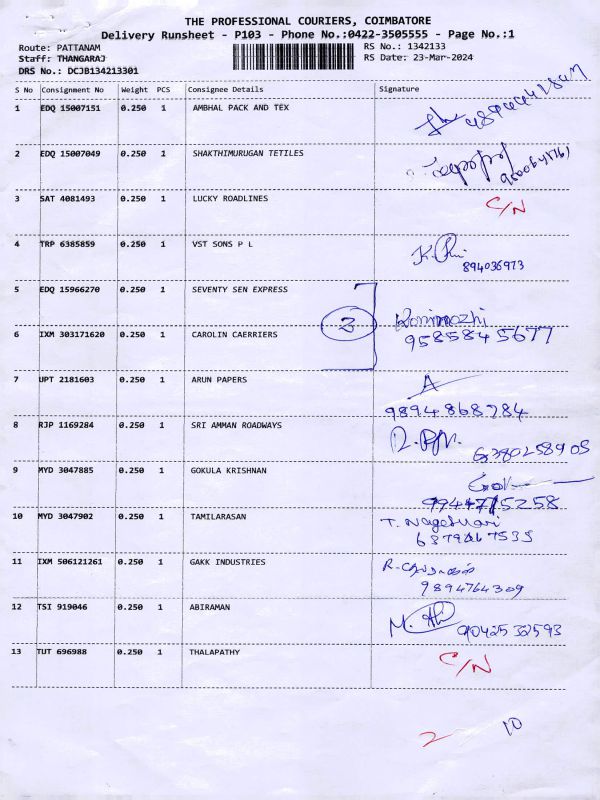 THE PROFESSIONAL COURIERS, COIMBATORE
Delivery Runsheet - P103 - Phone No.:0422-3505555 - Page No.:1
Route: PATTANAM RS No.: 1342133
Staff: THANGARAJ RS Date: 23-Mar-2024
DRS No.: DCJB134213301
S No Consignment No Weight PCS Consignee Details Signature
1 EDQ 15007151 0.250 1 AMBHAL PACK AND TEX
2 EDQ 15007049 0.250 1 SHAKTHIMURUGAN TETILES
3 SAT 4081493 0.250 1 LUCKY ROADLINES C/N
4 TRP 6385859 0.250 1 VST SONS P L
894036973
5 EDQ 15966270 0.250 1 SEVENTY SEN EXPRESS
2 Kanimozhi
6 IXM 303171620 0.250 1 CAROLIN CAERRIERS 9585845677
7 UPT 2181603 0.250 1 ARUN PAPERS A
9894868784
8 RJP 1169284 0.250 1 SRI AMMAN ROADWAYS
6380258905
9 MYD 3047885 0.250 1 GOKULA KRISHNAN
10 MYD 3047902 0.250 1 TAMILARASAN T. Nageswari
11 IXM 506121261 0.250 1 GAKK INDUSTRIES
9894764309
12 TSI 919046 0.250 1 ABIRAMAN
9042532593
13 TUT 696988 0.250 1 THALAPATHY C/N
2 10